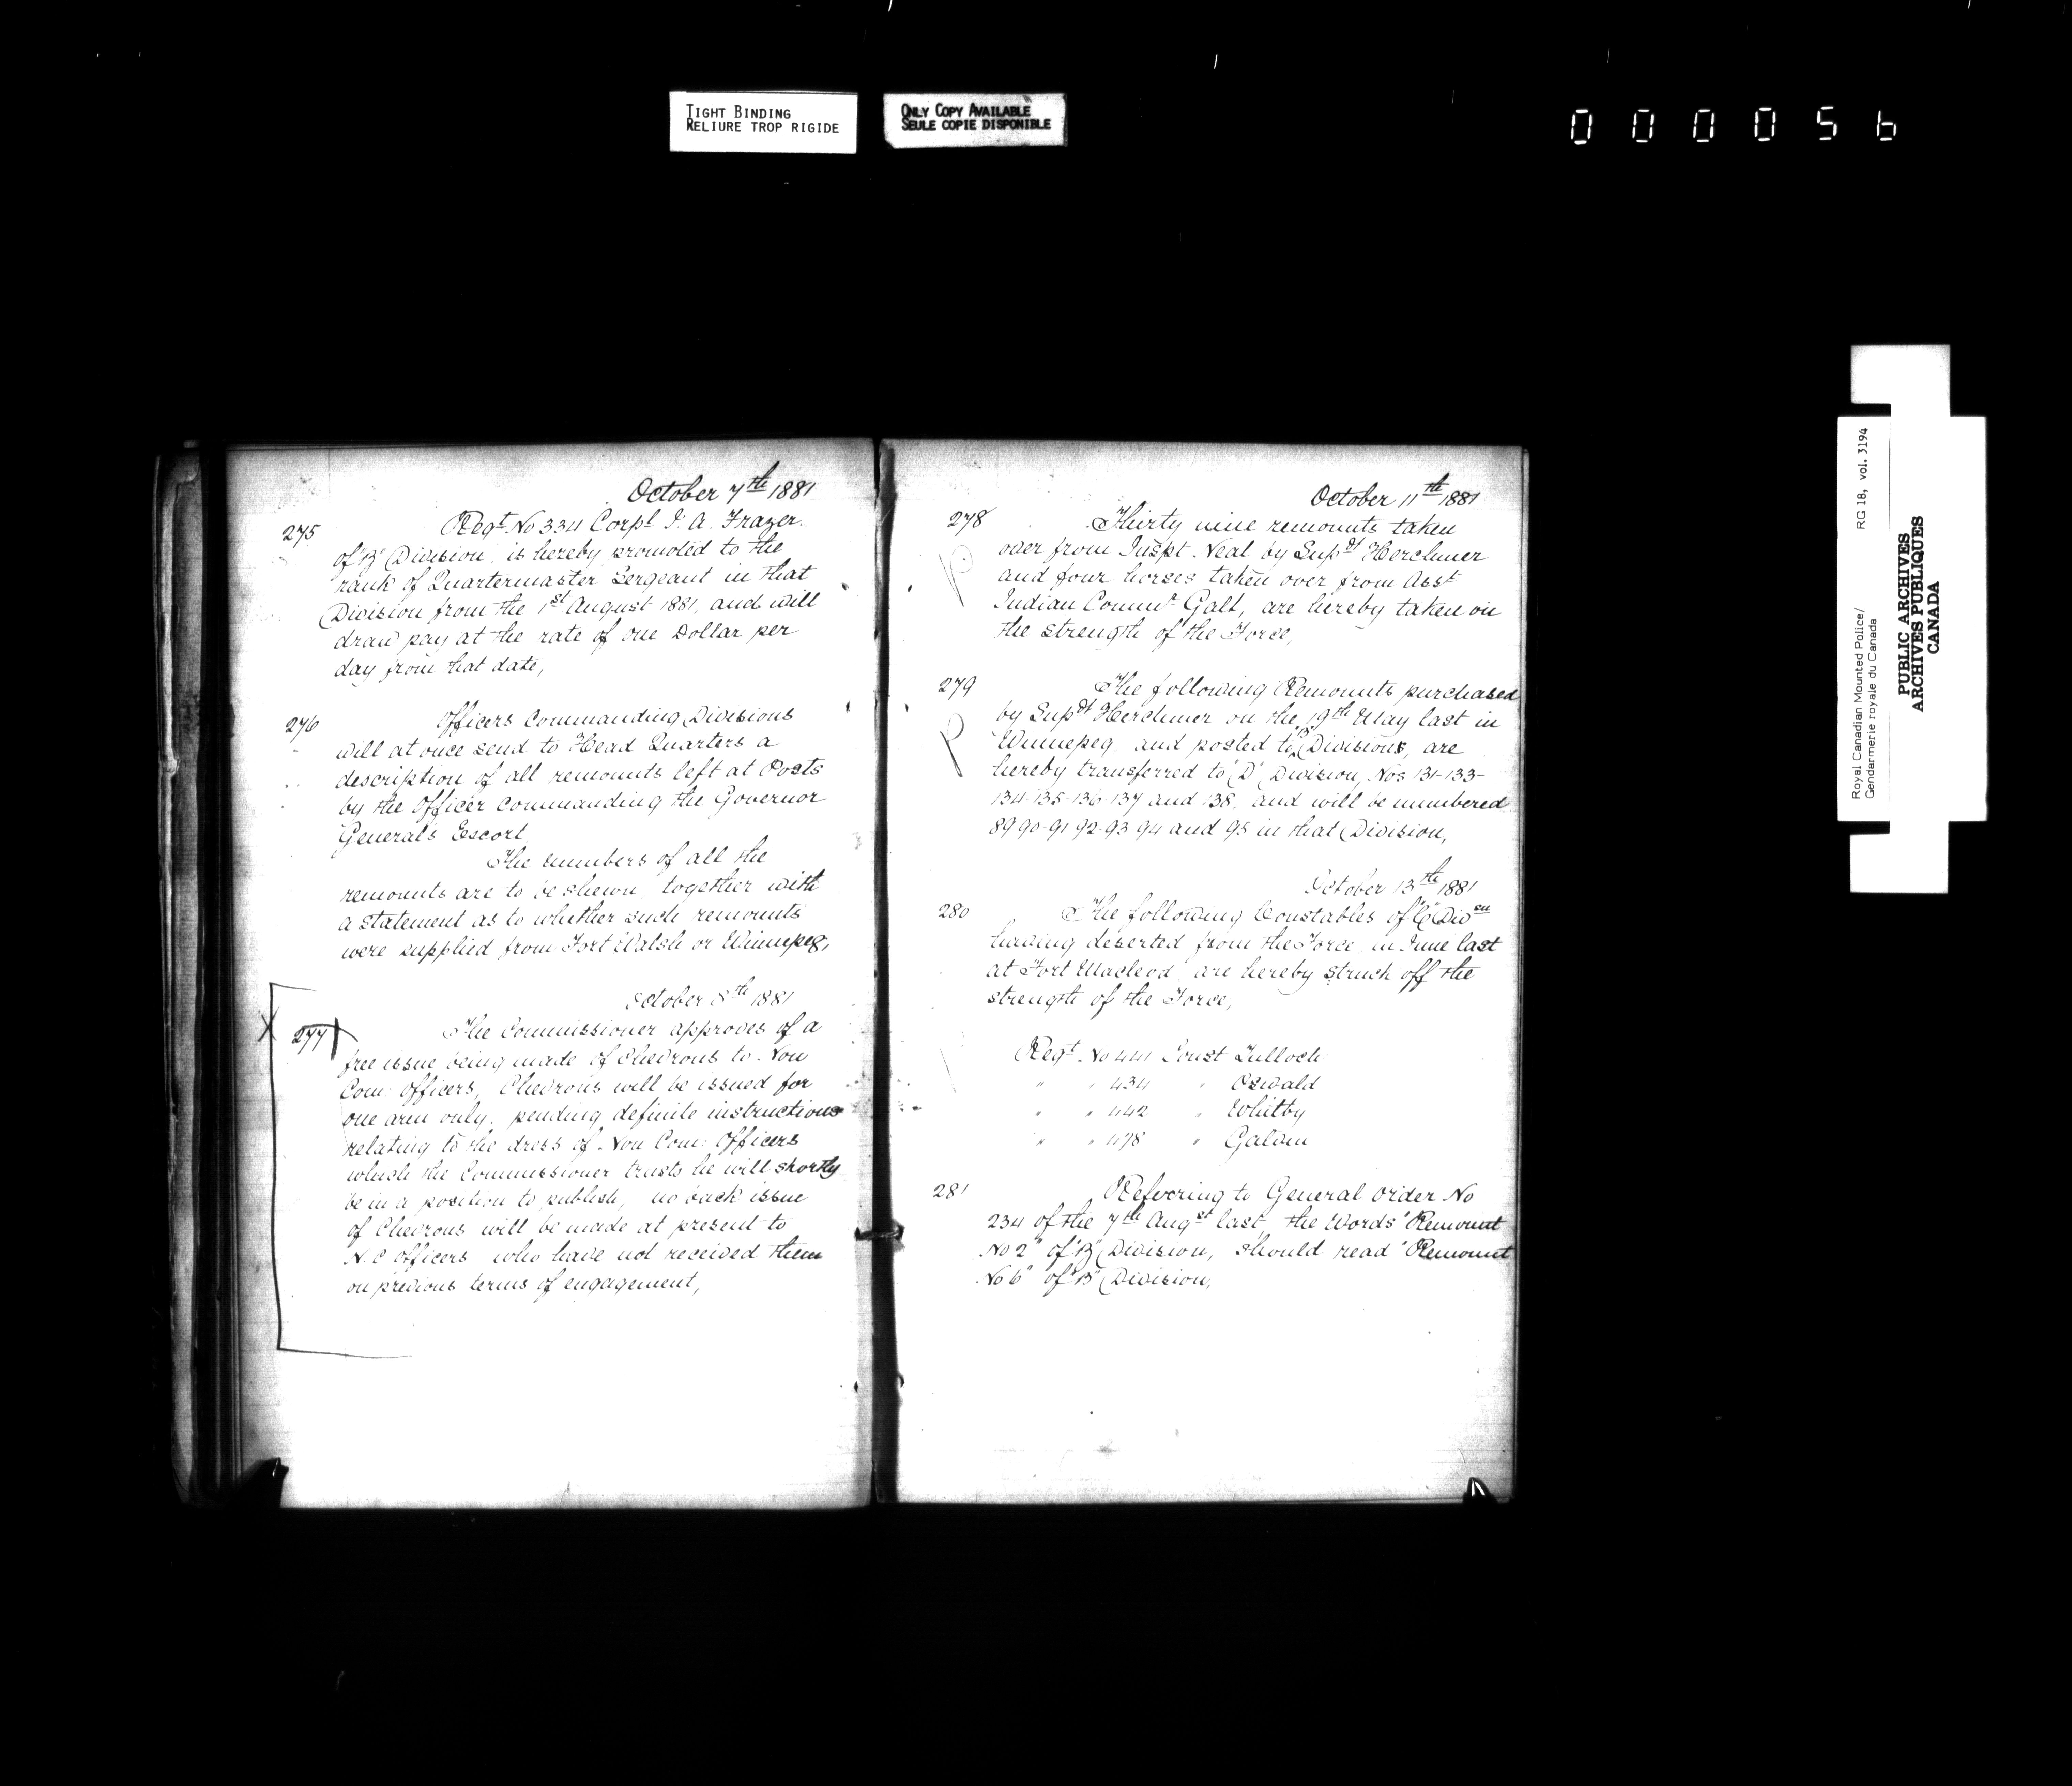 TIGHT BINDING
RELIURE TROP RIGIDE
ONLY COPY AVAILABLE
SEULE COPIE DISPONIBLE
000056
October 7th 1881
275 Regt. No 334 Corpl J. A. Frazer
of "B" Division is hereby promoted to the
rank of Quartermaster Sergeant in that
Division from the 1st August 1881, and will
draw pay at the rate of one Dollar per
day from that date,
276 Officers Commanding Divisions
will at once send to Head Quarters a
description of all remounts left at Posts
by the Officer commanding the Governor
Generals Escort
The numbers of all the
remounts are to be shewn, together with
a statement as to whether such remounts
were supplied from Fort Walsh or Winnepeg,
October 8th 1881
X 277 The Commissioner approves of a
free issue being made of Chevrons to Non
Com: Officers, Chevrons will be issued for
one arm only, pending definite instructions
relating to the dress of Non Com: Officers
which the Commissioner trusts he will shortly
be in a position to publish, no back issue
of Chevrons will be made at present to
N. C Officers who have not received them
on previous terms of engagement,
October 11th 1881
278 Thirty nine remounts taken
over from Inspt. Neal by Supdt Herchmer
and four horses taken over from Asst
Indian Commr Galt, are hereby taken on
the strength of the Force,
279 The following Remounts purchased
R by Supdt Herchmer on the 19th May last in
Winnepeg and posted to "B" Division, are
hereby transferred to 'D' Division, Nos 131-133-
134-135-136-137 and 138, and will be numbered
89-90-91-92-93-94 and 95 in that Division,
October 13th 1881
280 The following Constables of "C" Divon
having deserted from the Force in June last
at Fort Macleod are hereby struck off the
strength of the Force,
Regt. No 441 Const Tulloch
" " 434 " Oswald
" " 442 " Whitby
" " 478 "
281 Referring to General order No
234 of the 7th Augst last, the Words "Remount
No 2" of "B" Division, should read "Remount
No 6" of "B" Division,
Royal Canadian Mounted Police/ RG 18, vol. 3194
Gendarmerie royale du Canada
PUBLIC ARCHIVES
ARCHIVES PUBLIQUES
CANADA